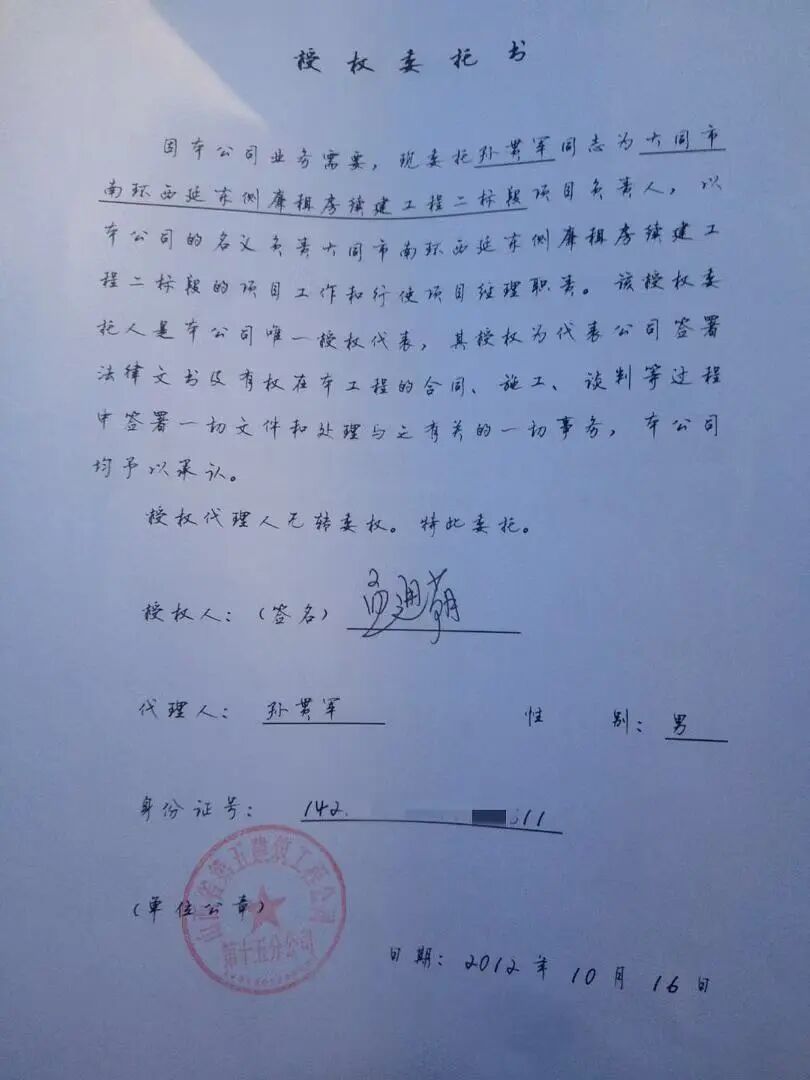 授权委托书
因本公司业务需要，现委托孙贯军同志为大同市
南环西延东侧廉租房续建工程二标段项目负责人，以
本公司的名义负责大同市南环西延东侧廉租房续建工
程二标段的项目工作和行使项目经理职责。该授权委
托人是本公司唯一授权代表，其授权为代表公司签署
法律文书及有权在本工程的合同、施工、谈判等过程
中签署一切文件和处理与之有关的一切事务，本公司
均予以承认。
授权代理人无转委权。特此委托。
授权人：（签名）
代理人：孙贯军 性 别：男
身份证号：142. 511
（单位公章）
第五建筑工程公司
第十五分公司
日期：2012年10月16日